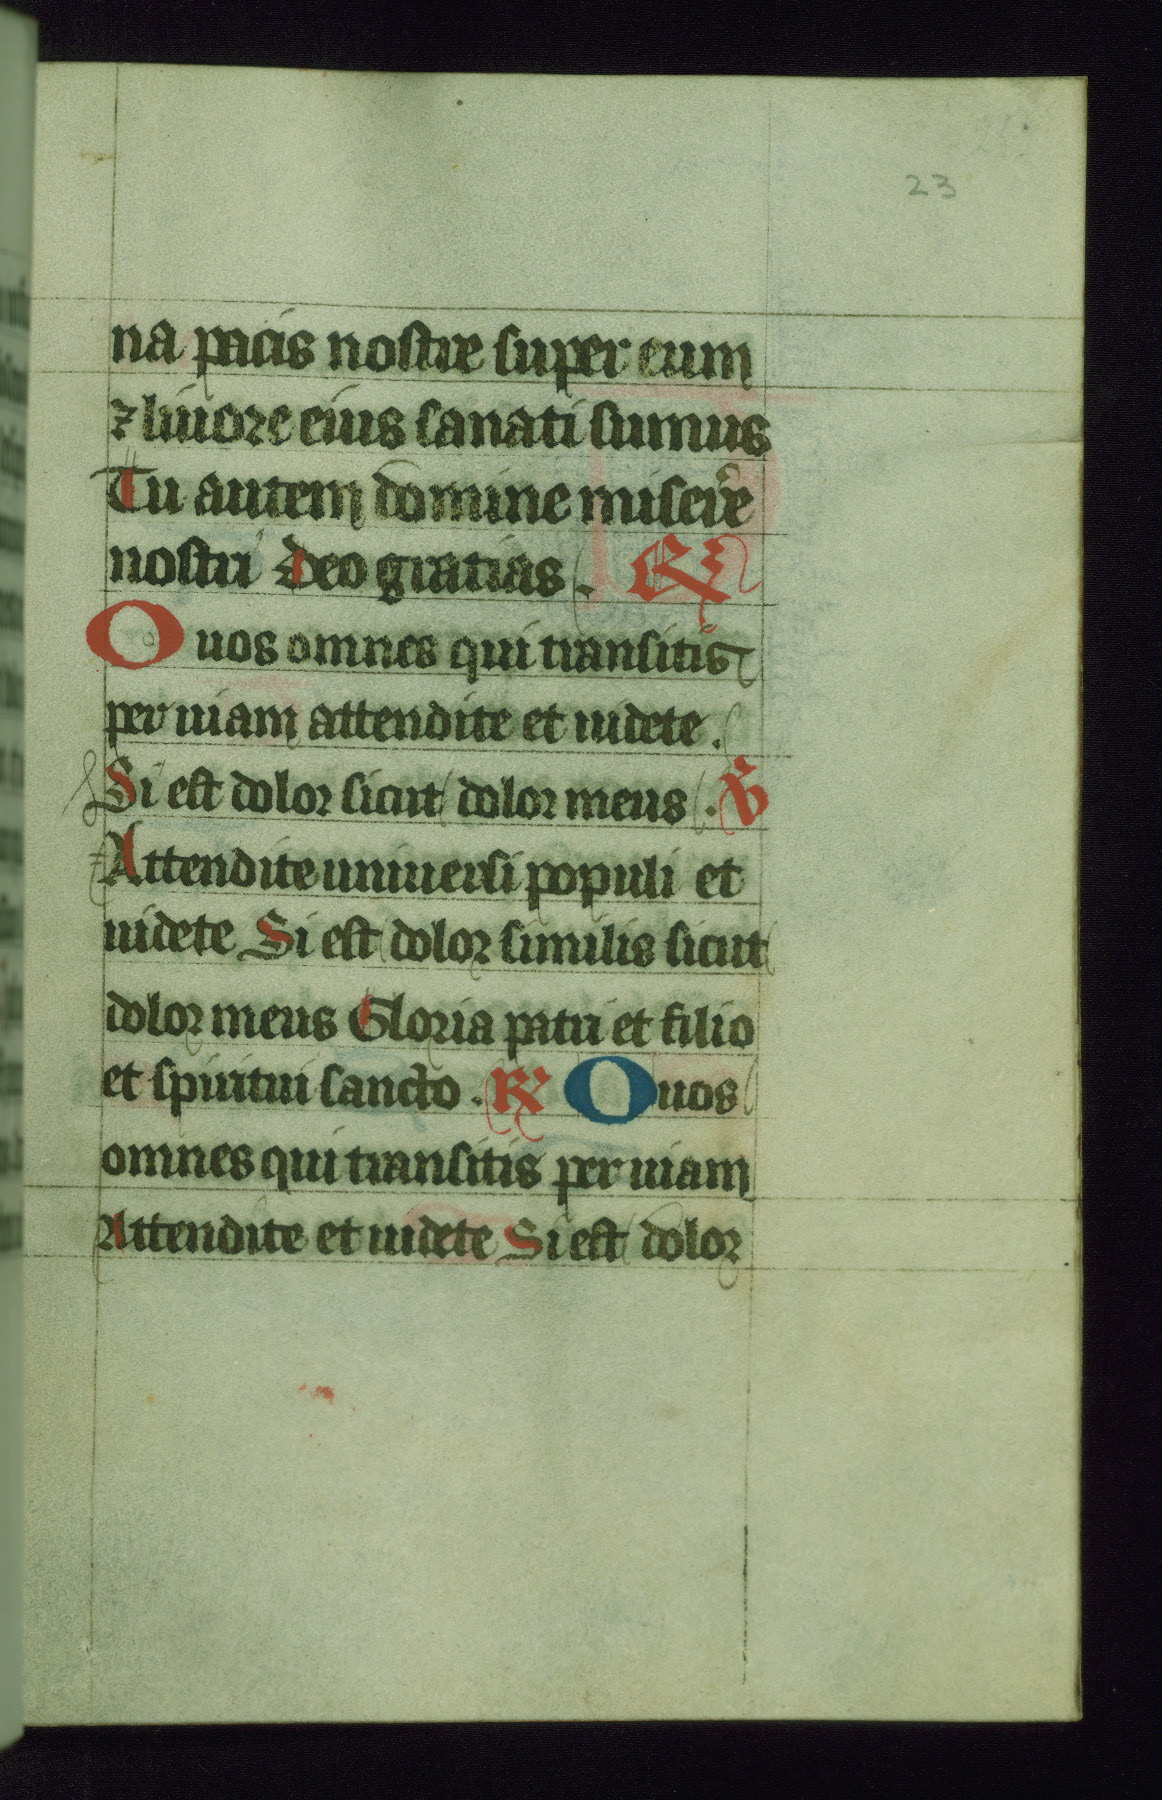 23
na pacis nostre super eum
⁊ liuore eius sanati sumus
Tu autem domine misere͛
nostri Deo gratias . ℟
O uos omnes qui transitis
per uiam attendite et uidete .
Si est dolor sicut dolor meus . ℣
Attendite uniuersi populi et
uidete Si est dolor similis sicut
dolor meus Gloria patri et filio
et spiritui sancto . ℟ O uos
omnes qui transitis per uiam
Attendite et uidete Si est dolor